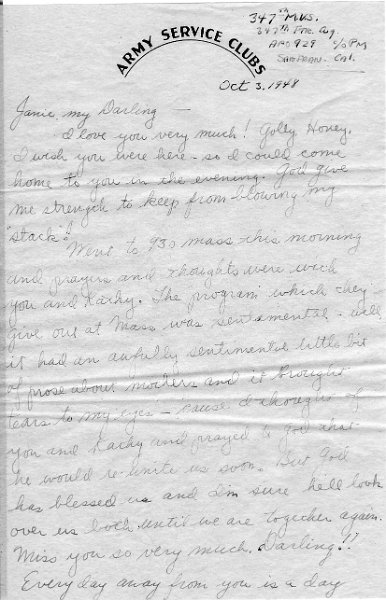 ARMY SERVICE CLUBS
347th
347th
APO 929 c/o PM
San Fran. Cal.
Oct 3, 1948
Janie, my Darling —
I love you very much! Golly Honey.
I wish you were here - so I could come
home to you in the evening. God give
me strength to keep from blowing my
"stack"!
Went to 930 mass this morning
and prayers and thoughts were with
you and Kathy. The program which they
give out at Mass was sentamental - well
it had an awfully sentimental little bit
of prose about mothers and it brought
tears to my eyes — 'cause I thought of
you and Kathy and prayed to God that
he would re-unite us soon. But God
has blessed us and I'm sure he'll look
over us both until we are together again.
Miss you so very much. Darling!!
Everyday away from you is a day